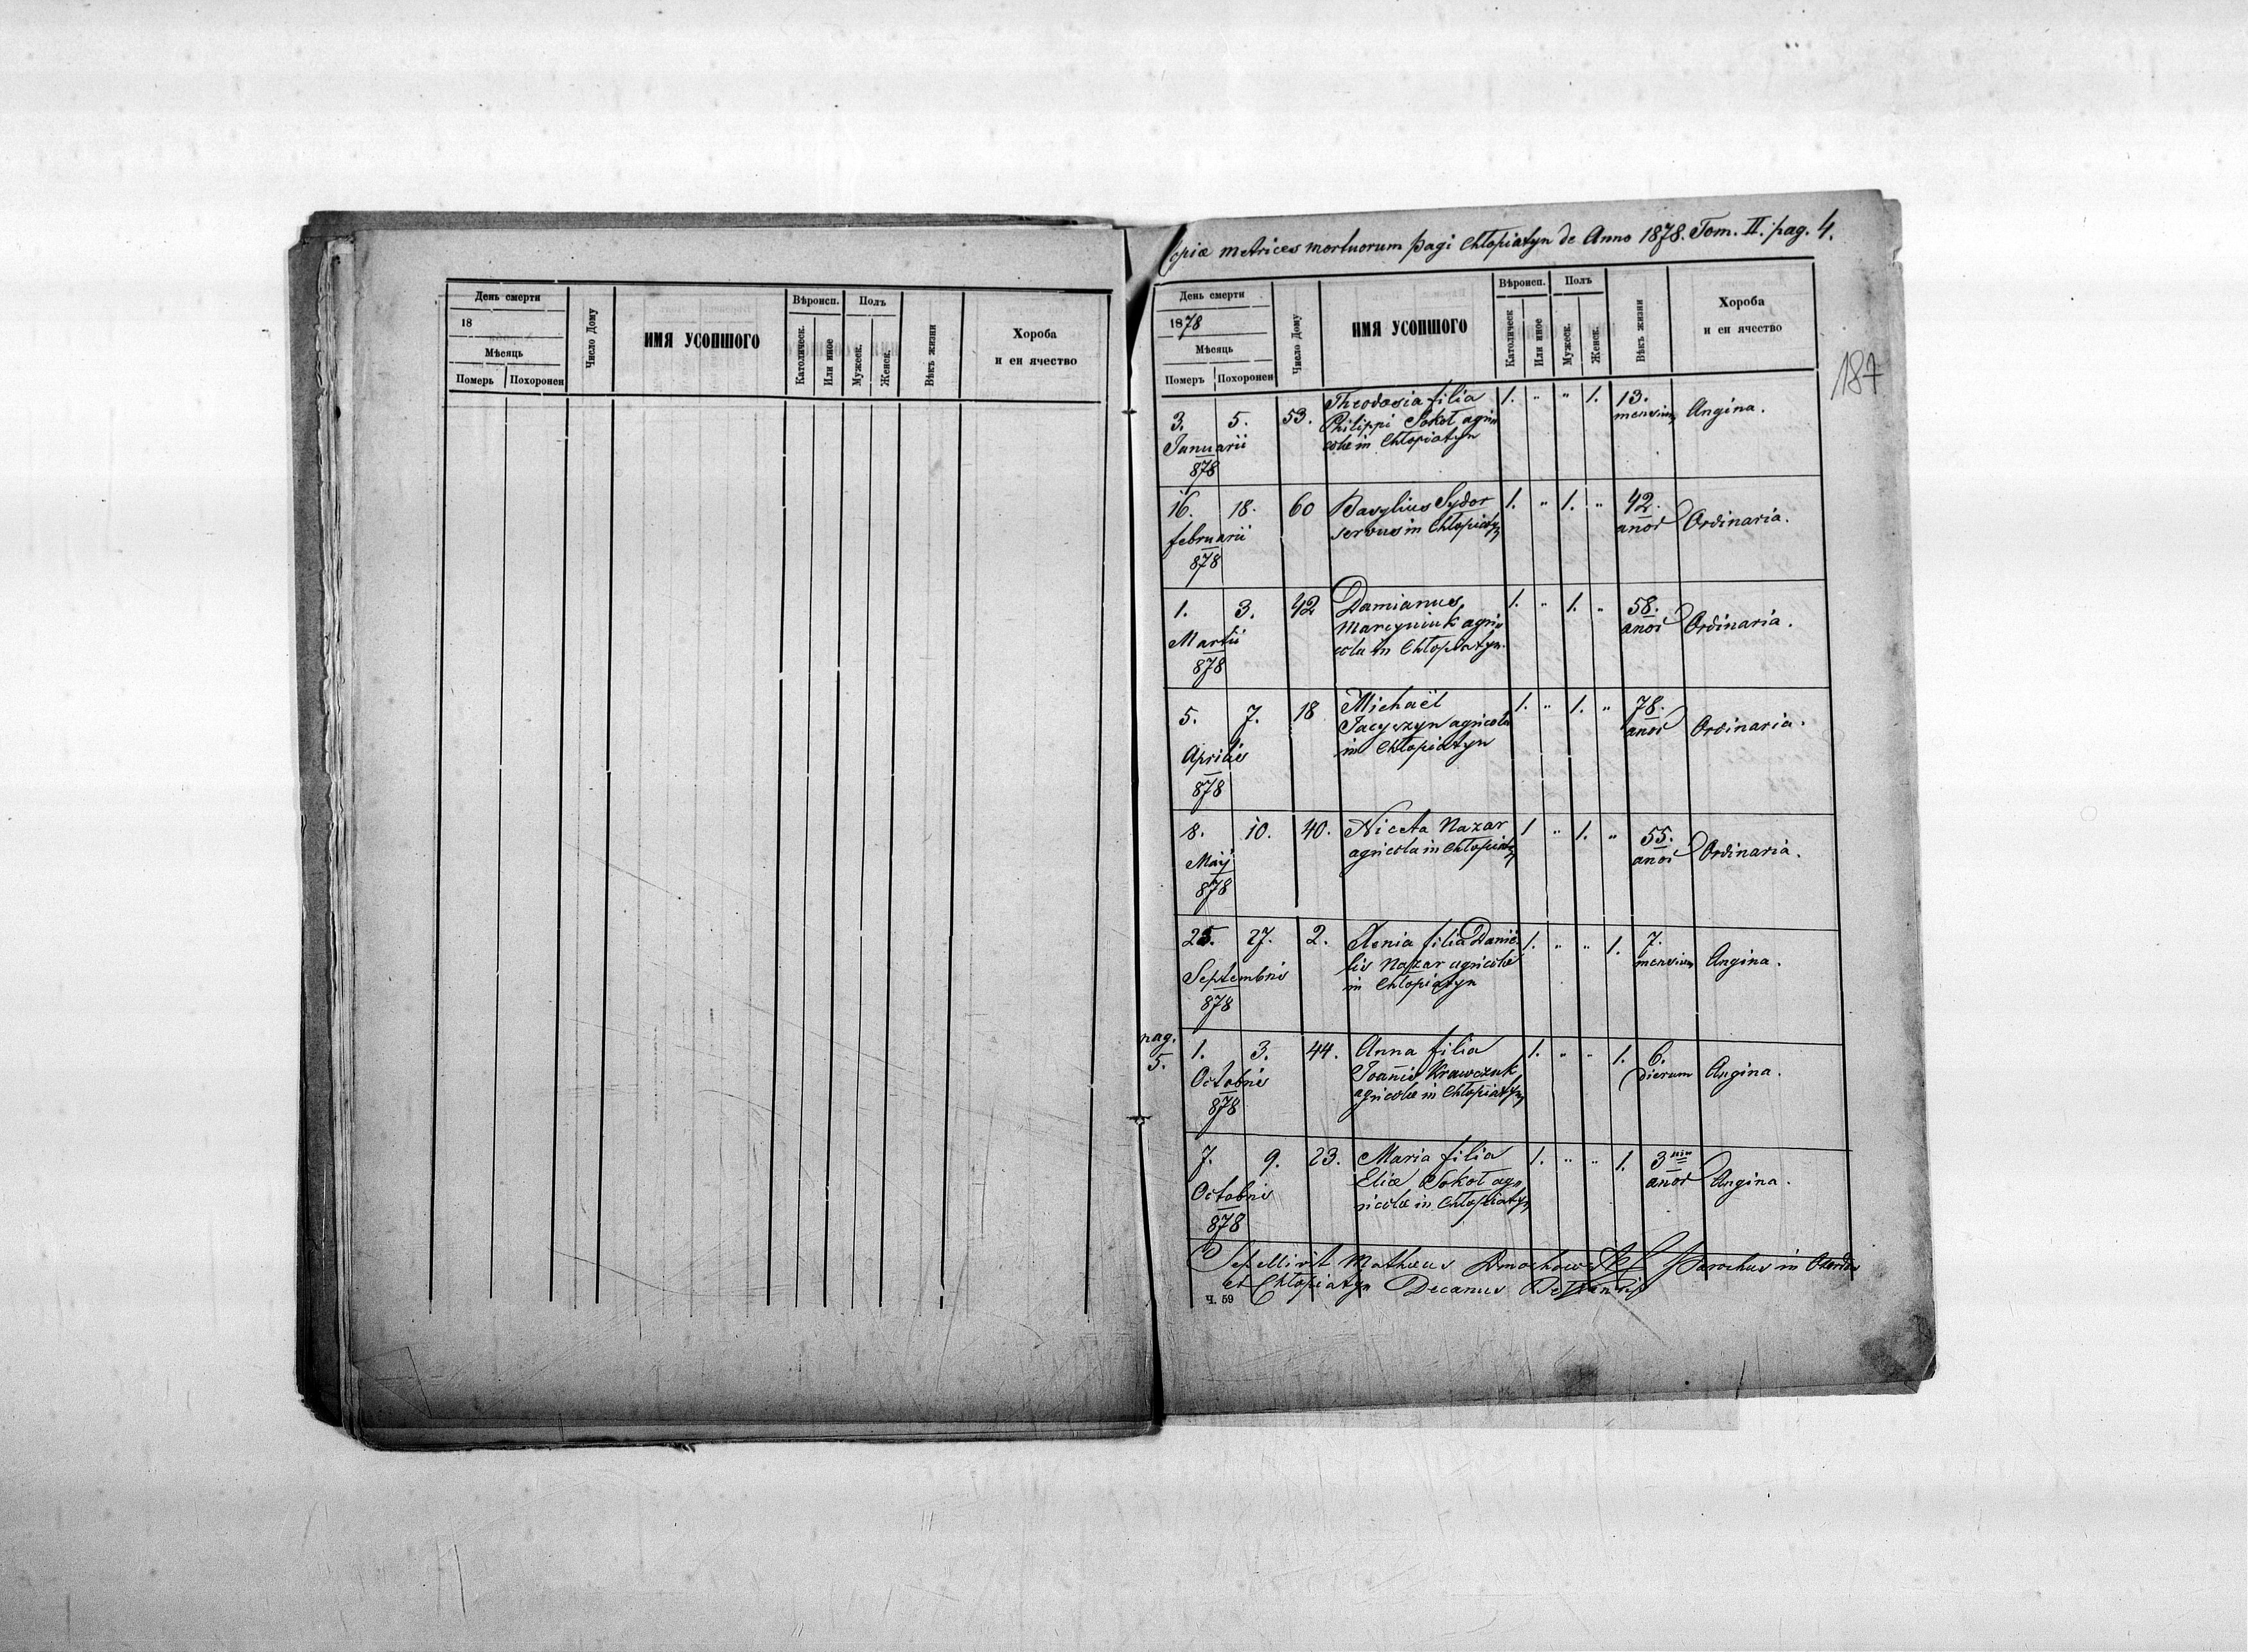 День смерти
18
Мѣсяць
Померь Похоронен
Число Дому
ИМЯ УСОПШОГО
Вѣроисп.
Католическ.
Или иное
Полъ
Мужеск.
Женск.
Вѣкъ жизни
Хороба
и еи ячество
Copiæ metrices mortuorum pagi Chłopiatyn de Anno 1878. Tom. II. pag. 4.
187
День смерти
1878
Мѣсяць
Померъ Похоронен
Число Дому
ИМЯ УСОПШОГО
Вѣроисп.
Католическ
Или иное
Полъ
Мужеск.
Женск.
Вѣкъ жизни
Хороба
и еи ячество
3. 5. 53. Theodosia filia 1. " " 1. 13.
Januarii Philippi Sokoł agri mensium Angina.
878 colæ in Chłopiatyn
16. 18. 60 Basylius Sydor 1. " 1. " 42.
februarii servus in Chłopiatyn anor Ordinaria.
878
1. 3. 42 Damianus 1. " 1. " 58.
Martii Marcyniuk agri anor Ordinaria.
878 cola in Chłopiatyn.
5. 7. 18 Michaël 1. " 1. " 78.
Aprilis Jacyszyn agricola anor Ordinaria.
878 in Chłopiatyn
8. 10. 40. Niceta Nazar 1 " 1. " 55.
Maij agricola in Chłopiatyn anor Ordinaria.
878
25. 27. 2. Xenia filia Danië 1. " " 1. 7.
Septembris lis Nazar agricolæ mensium Angina.
878 in Chłopiatyn
pag.
5.
1. 3. 44. Anna filia 1. " " 1. 6.
Octobris Joannis Krawczuk dierum Angina.
878 agricolæ in Chłopiatyn
7. 9. 23. Maria filia 1. " " 1. 3
Octobris Eliæ Sokoł ag anor Angina.
878 ricolæ in Chłopiatyn
Sepellivit Mathæus Parochus in
et Chłopiatyn Decanus
Ч. 59